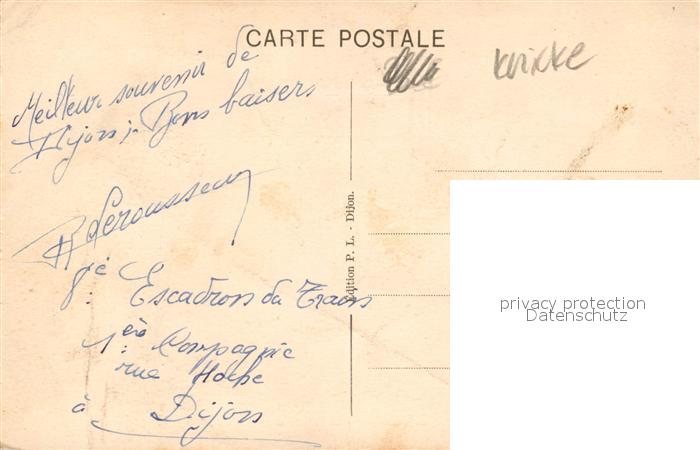 CARTE POSTALE
Meilleur souvenir de
Dijon; Bons baisers
8e Escadron du Train
1ère Compagnie
rue Hoche
à Dijon
Edition P. L. - Dijon.
privacy protection
Datenschutz